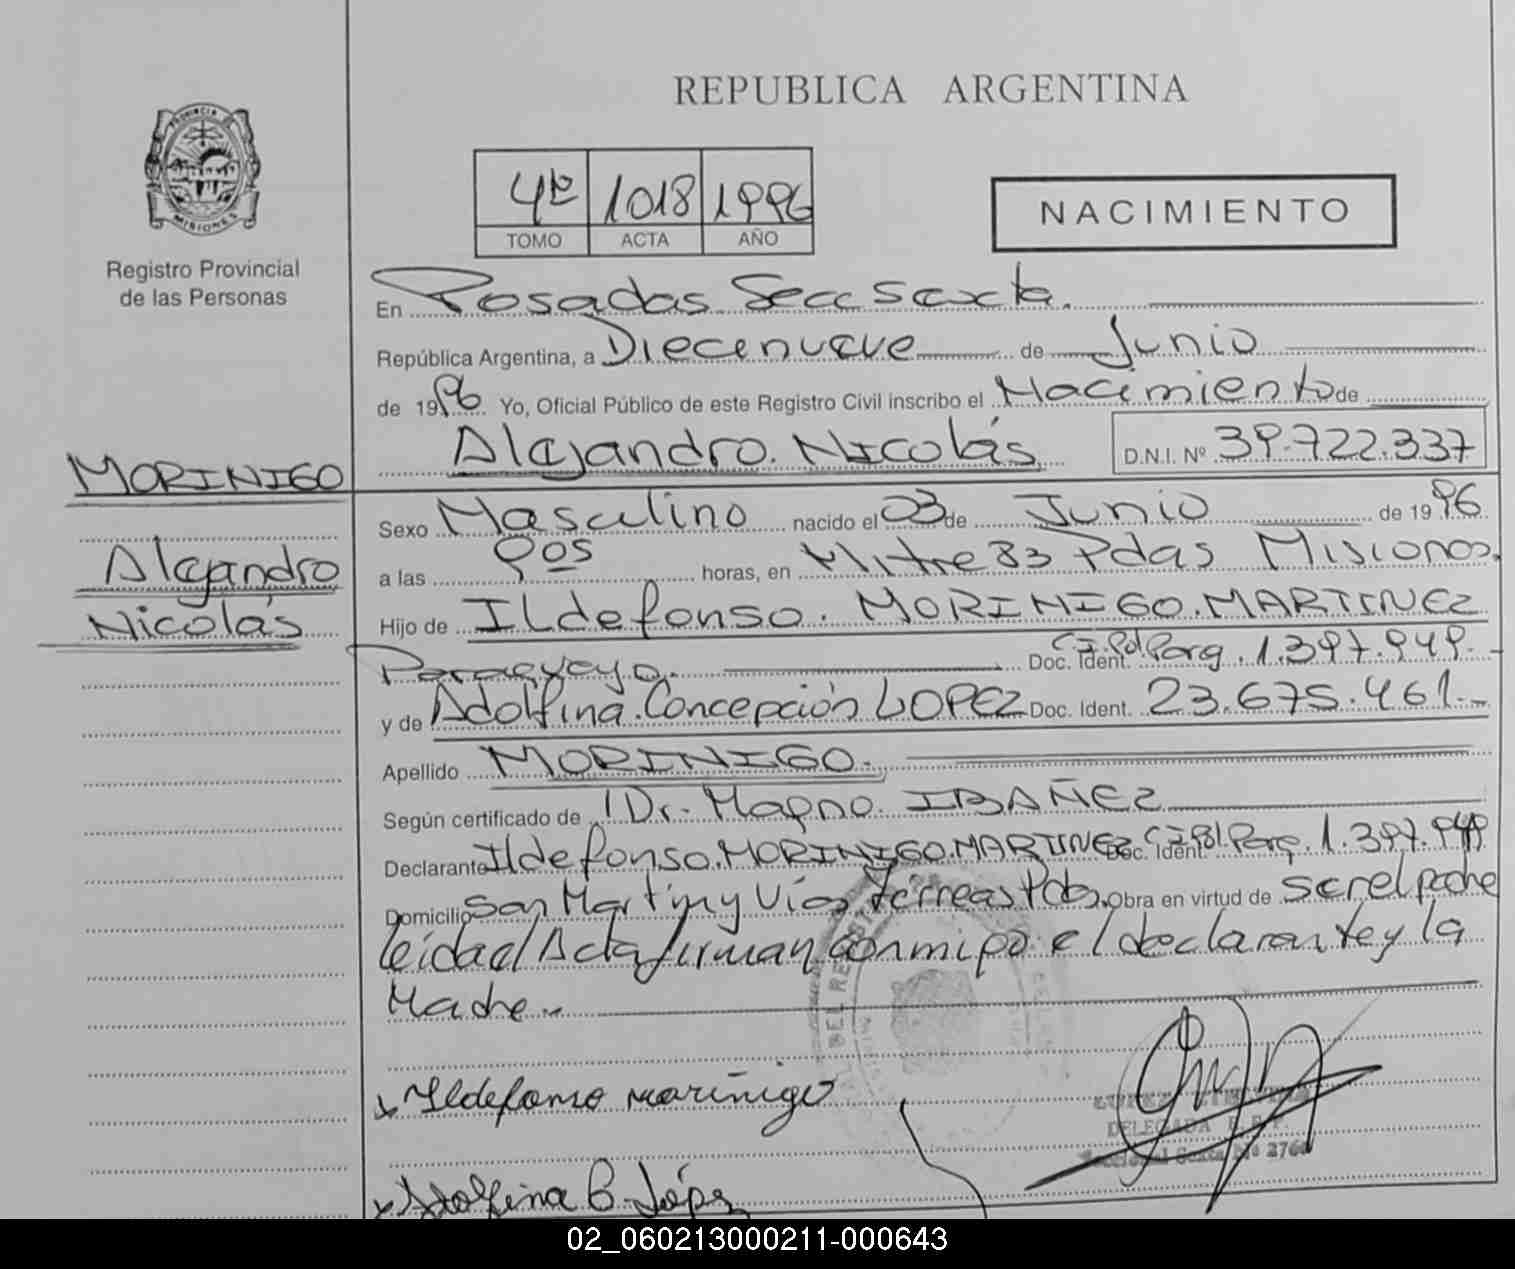 REPUBLICA ARGENTINA
PROVINCIA DE
MISIONES
Registro Provincial
de las Personas
4to 1018 1996
TOMO ACTA AÑO
NACIMIENTO
En Posadas Secc Sexta.
República Argentina, a Diecenueve de Junio
de 1996 Yo, Oficial Público de este Registro Civil inscribo el Nacimiento de
Alejandro. Nicolás D.N.I. Nº 39.722.337
MORINIGO
Alejandro
Nicolás
Sexo Masculino nacido el 03 de Junio de 1996
a las 9os horas, en Mitre 83 Pdas Misiones.
Hijo de Ildefonso. MORINIGO. MARTINEZ
Paraguayo. Doc. Ident. C.I.Pol Parg. 1.397.949.-
y de Adolfina. Concepción LOPEZ Doc. Ident. 23.675.461.-
Apellido MORINIGO.
Según certificado de Dr. Magno. IBAÑEZ
Declarante Ildefonso. MORINIGO. MARTINEZ Doc. Ident. C.I.Pol Parg. 1.397.949
Domicilio San Martin y Vías Férreas Pdas. Obra en virtud de ser el padre
leida el Acta firman conmigo el declarante y la
Madre..
Ildefonso moriñigo
Adolfina C. López
DELEGADA
Seccional Sexta Nº
02_060213000211-000643